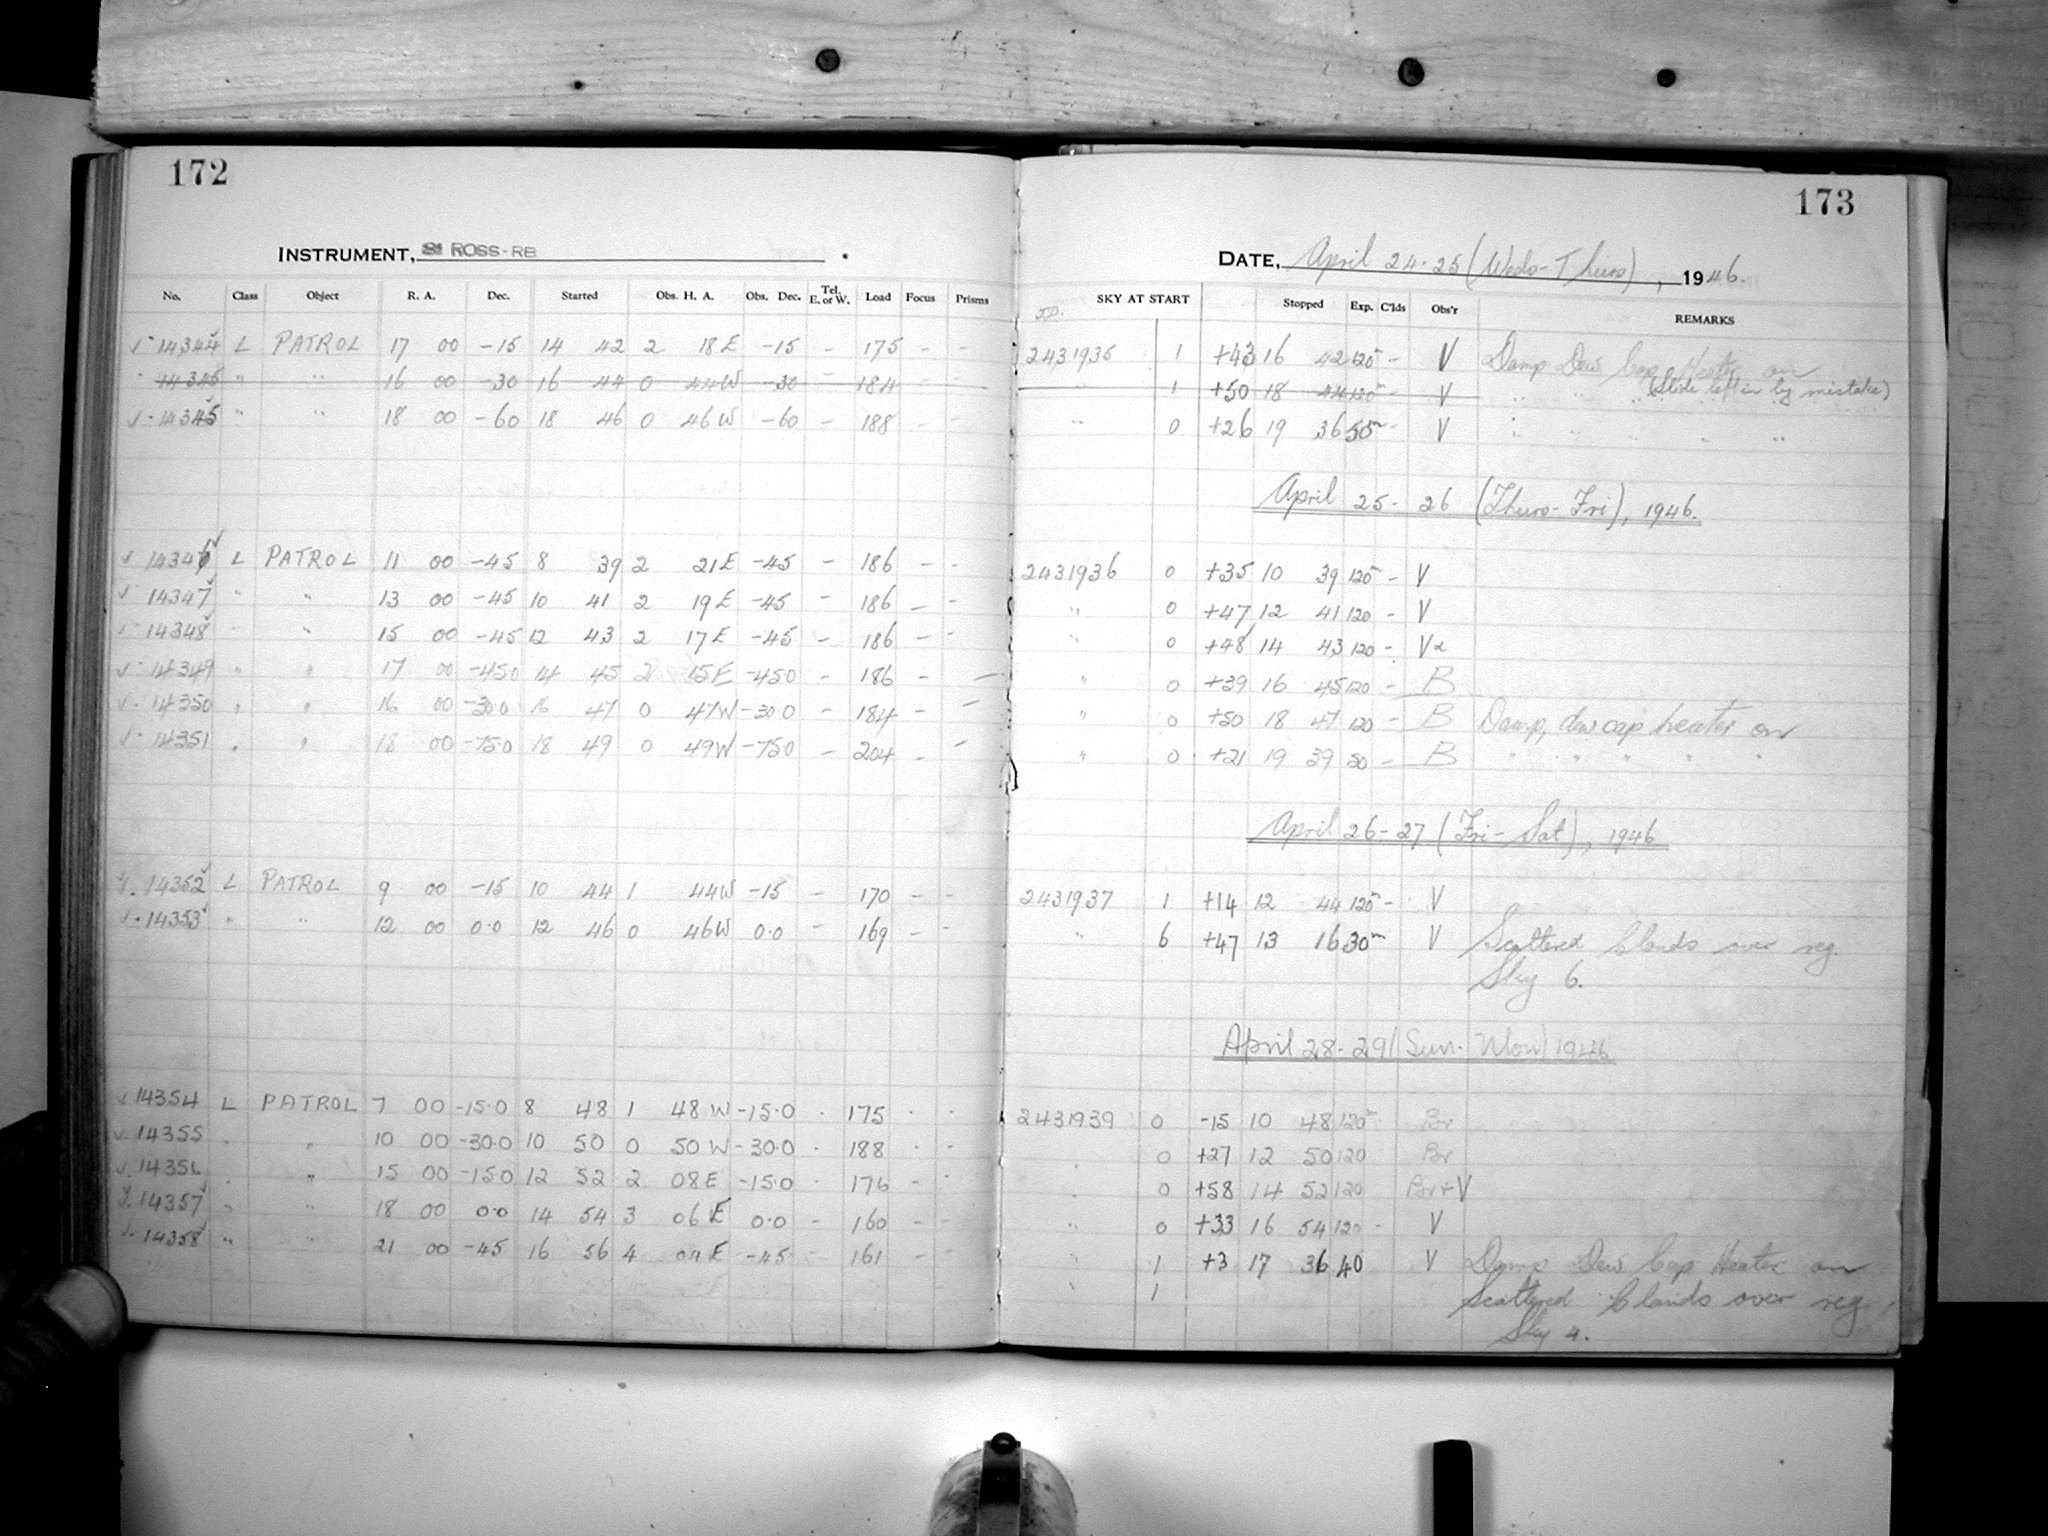 172
INSTRUMENT, ROSS-RB
No. Class Object R. A. Dec. Started Obs. H. A. Obs. Dec. Tel. E. or W. Load Focus Prisms
14344 L PATROL 17 00 -15 14 42 2 18E -15 - 175 - -
14345 " " 16 00 -30 16 44 0 44W -30 - 184 - -
14345 " " 18 00 -60 18 46 0 46W -60 - 188 - -
14346 L PATROL 11 00 -45 8 39 2 21E -45 - 186 - -
14347 " " 13 00 -45 10 41 2 19E -45 - 186 - -
14348 " " 15 00 -45 12 43 2 17E -45 - 186 - -
14349 " " 17 00 -450 14 45 2 15E -450 - 186 - -
14350 " " 16 00 -30.0 16 47 0 47W -300 - 184 - -
14351 " " 18 00 -75.0 18 49 0 49W -750 - 204 - -
14352 L PATROL 9 00 -15 10 44 1 44W -15 - 170 - -
14353 " " 12 00 0.0 12 46 0 46W 0.0 - 169 - -
14354 L PATROL 7 00 -15.0 8 48 1 48W -15.0 . 175 . .
14355 " " 10 00 -30.0 10 50 0 50W -30.0 . 188 - -
14356 " " 15 00 -15.0 12 52 2 08E -15.0 . 176 - -
14357 " " 18 00 0.0 14 54 3 06E 0.0 - 160 - -
14358 " " 21 00 -45 16 56 4 04E -45 - 161 - -
173
DATE, April 24-25 (Weds-Thurs), 1946.
J.D. SKY AT START Stopped Exp. C'lds Obs'r REMARKS
2431935 1 +43 16 42 120m - V Damp Dew Cap Heater on
" 1 +50 18 44 120m - V (Slide left in by mistake)
" 0 +26 19 36 50m - V " " " " "
April 25-26 (Thurs-Fri), 1946.
2431936 0 +35 10 39 120m - V
" 0 +47 12 41 120 - V
" 0 +48 14 43 120 -
" 0 +39 16 45 120 - B
" 0 +50 18 47 120 - B Damp, dew cap heater on
" 0 +21 19 39 50 - B " " " " "
April 26-27 (Fri-Sat), 1946
2431937 1 +14 12 44 120m - V
" 6 +47 13 16 30m V Scattered Clouds over reg.
Sky 6.
April 28-29 (Sun-Mon) 1946
2431939 0 -15 10 48 120m Br
" 0 +27 12 50 120 Br
" 0 +58 14 52 120 Br+V
" 0 +33 16 54 120 - V
" 1 +3 17 36 40 V Damp Dew Cap Heater on
" 1 Scattered Clouds over reg.
Sky 4.